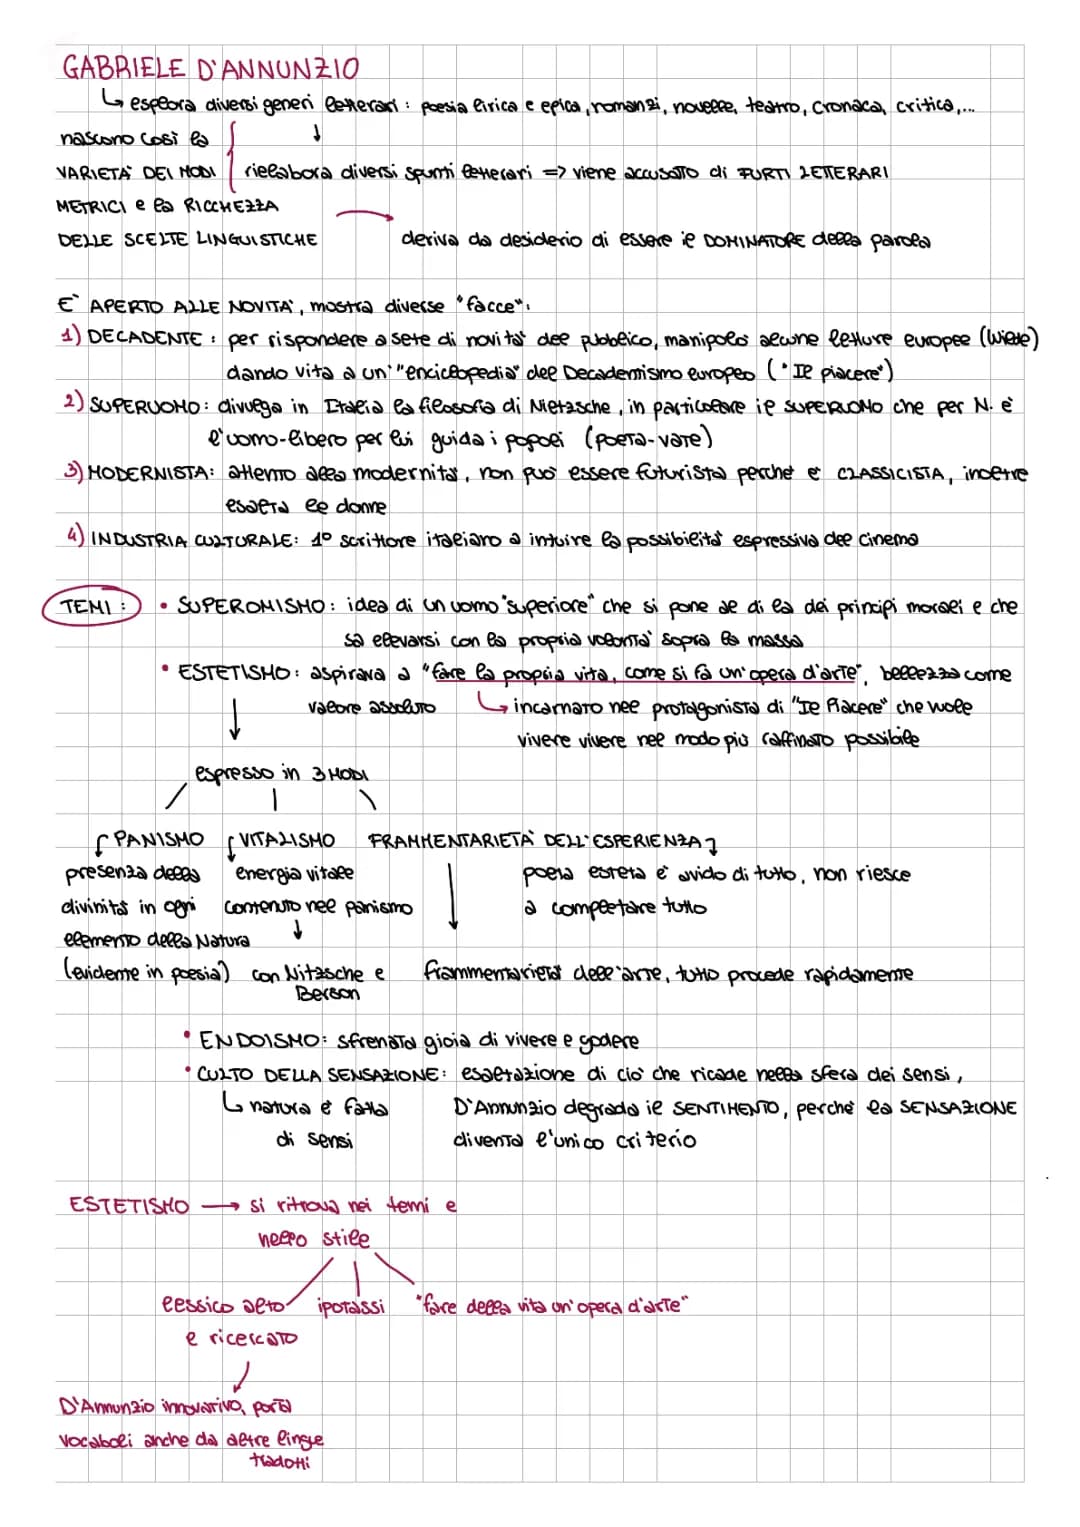 GABRIELE D'ANNUNZIO
↳ esplora diversi generi letterari : poesia lirica e epica, romanzi, novelle, teatro, cronaca, critica,...
nascono così la
VARIETA' DEI MODI rielabora diversi spunti letterari => viene accusato di FURTI LETTERARI
METRICI e la RICCHEZZA
DELLE SCELTE LINGUISTICHE deriva da desiderio di essere il DOMINATORE della parola
E' APERTO ALLE NOVITA', mostra diverse "facce":
1) DECADENTE : per rispondere a sete di novità del pubblico, manipolò alcune letture europee (Wilde)
dando vita a un' "enciclopedia" del Decadentismo europeo ("Il piacere")
2) SUPERUOMO: divulga in Italia la filosofia di Nietzsche, in particolare il SUPERUOMO che per N. è
l'uomo-libero per lui guida i popoli (poeta-vate)
3) MODERNISTA: attento alla modernità, non può essere futurista perchè è CLASSICISTA, inoltre
esalta le donne
4) INDUSTRIA CULTURALE: 1° scrittore italiano a intuire la possibilità espressiva del cinema
TEMI : • SUPEROMISMO: idea di un uomo "superiore" che si pone al di là dei principi morali e che
sa elevarsi con la propria volontà sopra la massa
• ESTETISMO: aspirava a "fare la propria vita, come si fa un'opera d'arte", bellezza come
valore assoluto ↳ incarnato nel protagonista di "Il Piacere" che vuole
vivere vivere nel modo più raffinato possibile
espresso in 3 MODI
PANISMO VITALISMO FRAMMENTARIETÀ DELL'ESPERIENZA
presenza della energia vitale poeta esteta è avido di tutto, non riesce
divinità in ogni contenuto nel panismo a completare tutto
elemento della Natura
(evidente in poesia) con Nitzsche e frammentarietà dell'arte, tutto procede rapidamente
Berson
• ENDOISMO: sfrenata gioia di vivere e godere
• CULTO DELLA SENSAZIONE: esaltazione di ciò che ricade nella sfera dei sensi,
↳ natura è fatta D'Annunzio degrada il SENTIMENTO, perchè la SENSAZIONE
di sensi diventa l'unico criterio
ESTETISMO → si ritrova nei temi e
nello stile
lessico alto ipotassi "fare della vita un'opera d'arte"
e ricercato
D'Annunzio innovativo, porta
vocaboli anche da altre lingue
tradotti